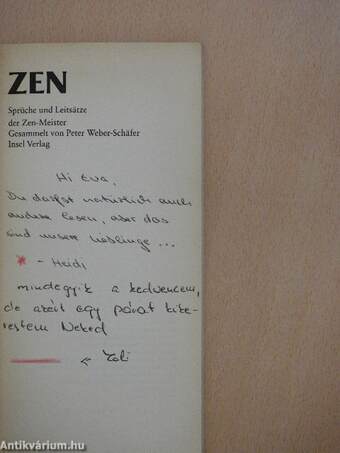 ZEN
Sprüche und Leitsätze
der Zen-Meister
Gesammelt von Peter Weber-Schäfer
Insel Verlag
Hi Eva,
Du darfst natürlich auch
andere lesen, aber das
sind unsere Lieblinge ...
* - Heidi
mindegyik a kedvencem,
de azért egy párat kike-
restem Neked
← Zoli
Antikvárium.hu